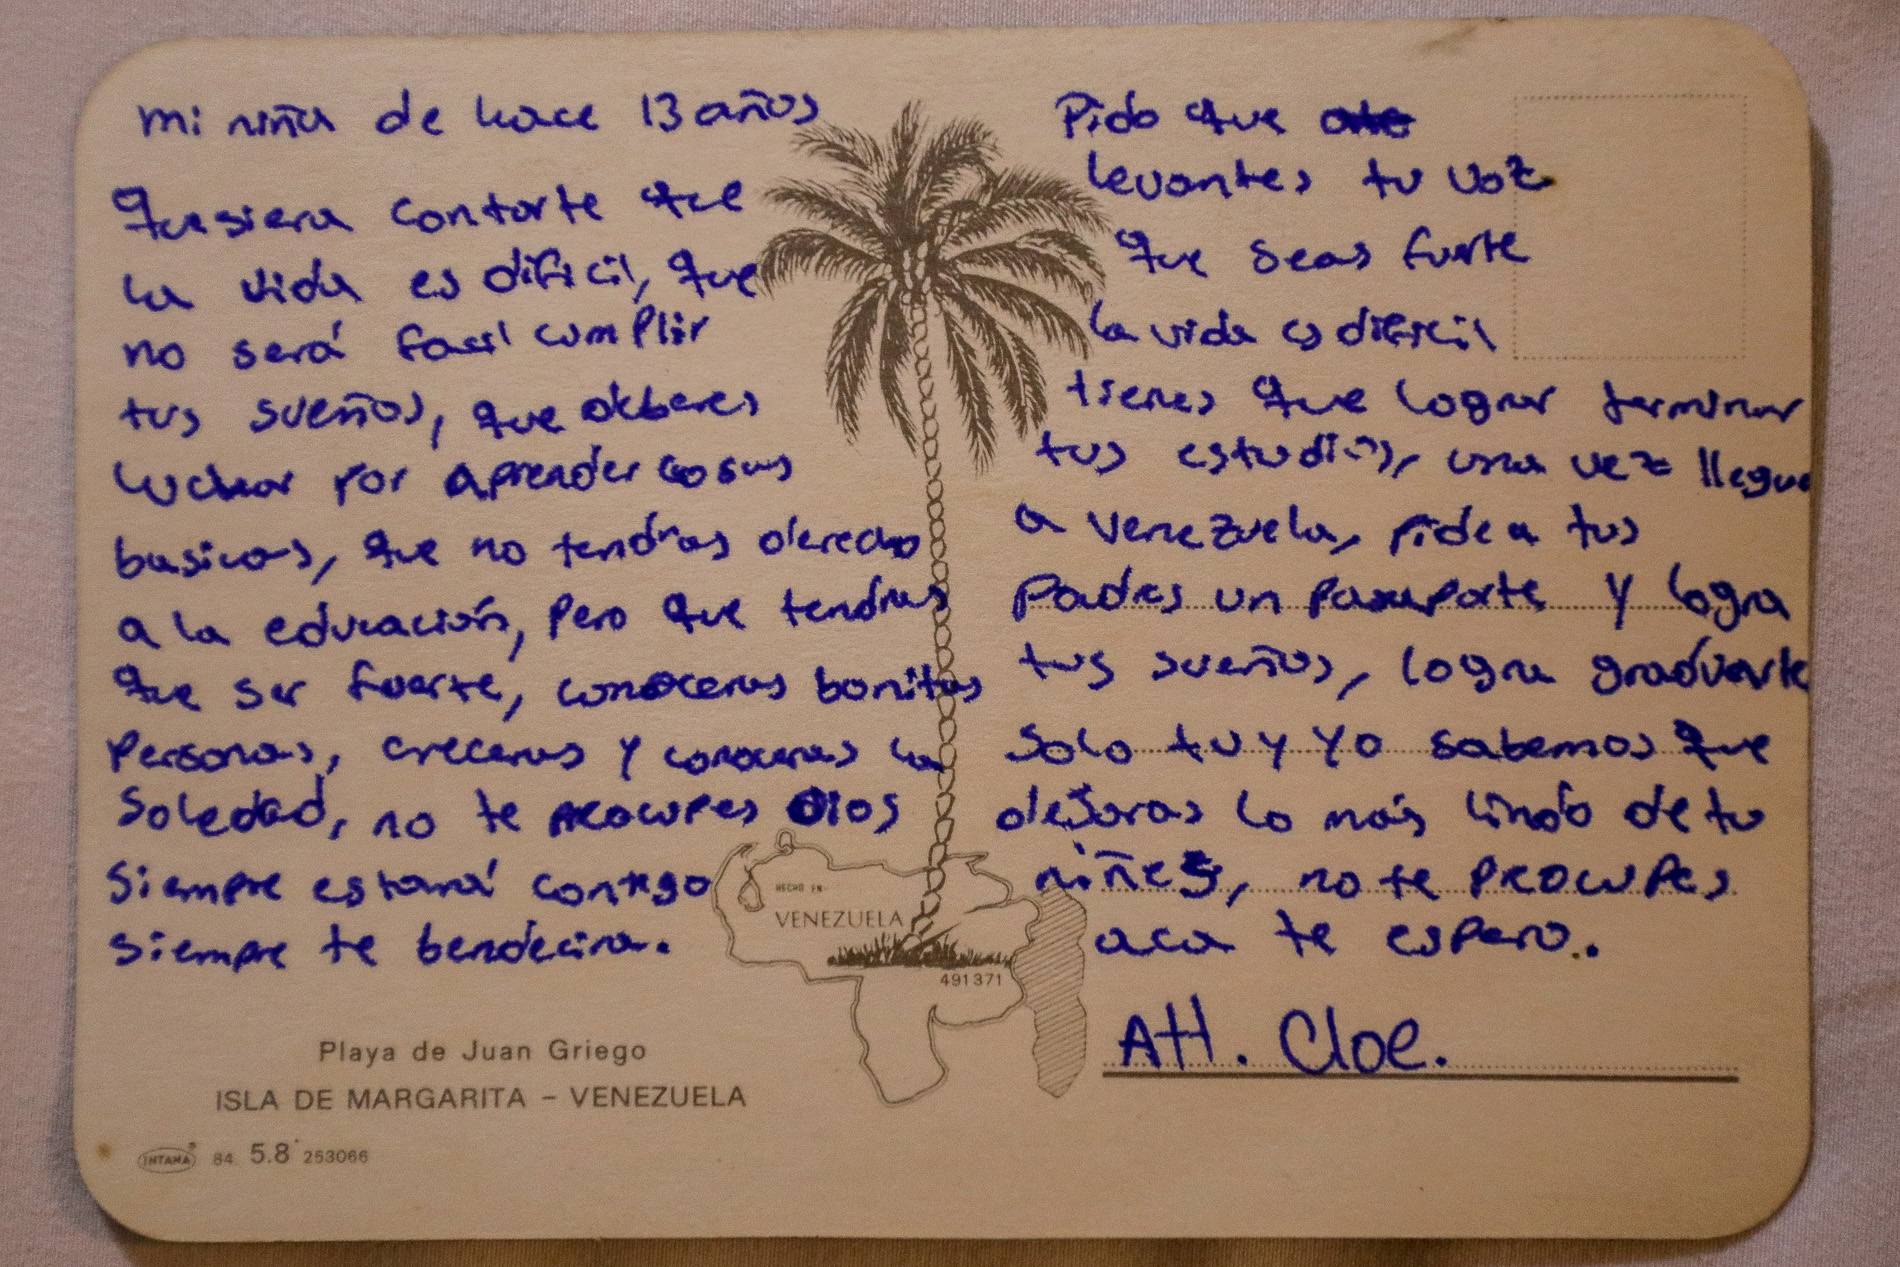 mi niña de hace 13 años
Quesiera contarte que
la vida es dificil, que
no será facil cumplir
tus sueños, que deberes
luchar por aprender cosas
basicas, que no tendras derecho
a la educación, pero que tendras
que ser fuerte, conoceras bonitas
personas, creceras y conoceras la
soledad, no te preocupes Dios
siempre estará contigo
siempre te bendecira.
Pido que
levantes tu voz
que seas fuerte
la vida es dificil
tienes que lograr terminar
tus estudios, una vez llegue
a Venezuela, pide a tus
padres un pasaporte y logra
tus sueños, logra graduarte
solo tu y yo sabemos que
dejaras lo más lindo de tu
niñez, no te preocupes
aca te espero.
Att. Cloe.
HECHO EN
VENEZUELA
491371
Playa de Juan Griego
ISLA DE MARGARITA – VENEZUELA
INTANA 84. 5.8 253066